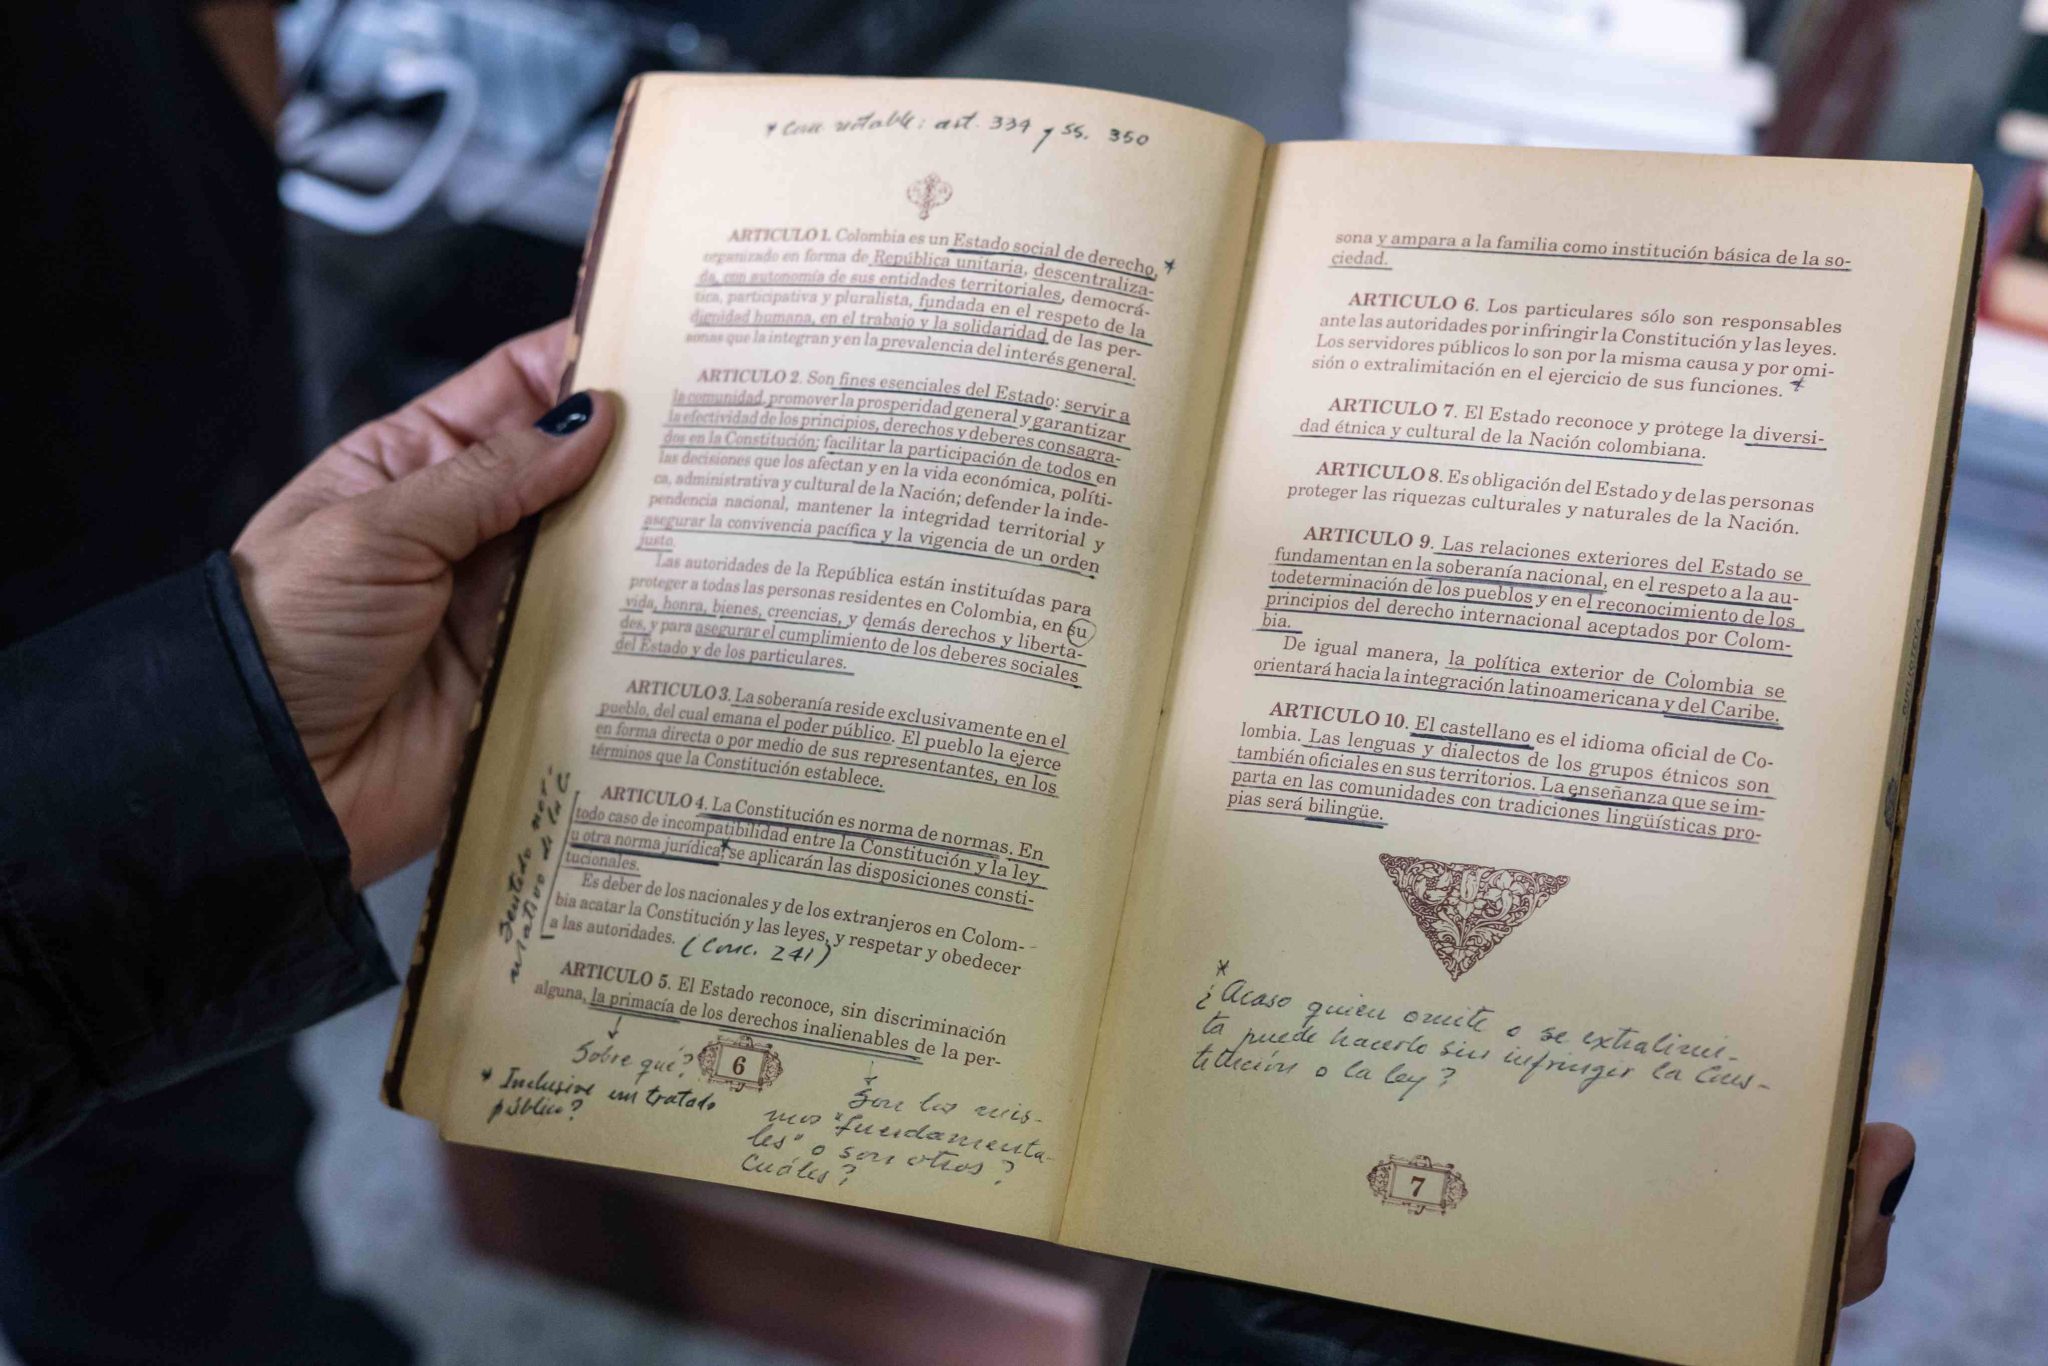 * Conc. notable: art. 334 y ss. 350
ARTICULO 1. Colombia es un Estado social de derecho, *
organizado en forma de República unitaria, descentraliza-
da, con autonomía de sus entidades territoriales, democrá-
tica, participativa y pluralista, fundada en el respeto de la
dignidad humana, en el trabajo y la solidaridad de las per-
sonas que la integran y en la prevalencia del interés general.
ARTICULO 2. Son fines esenciales del Estado: servir a
la comunidad, promover la prosperidad general y garantizar
la efectividad de los principios, derechos y deberes consagra-
dos en la Constitución; facilitar la participación de todos en
las decisiones que los afectan y en la vida económica, políti-
ca, administrativa y cultural de la Nación; defender la inde-
pendencia nacional, mantener la integridad territorial y
asegurar la convivencia pacífica y la vigencia de un orden
justo.
Las autoridades de la República están instituídas para
proteger a todas las personas residentes en Colombia, en su
vida, honra, bienes, creencias, y demás derechos y liberta-
des, y para asegurar el cumplimiento de los deberes sociales
del Estado y de los particulares.
ARTICULO 3. La soberanía reside exclusivamente en el
pueblo, del cual emana el poder público. El pueblo la ejerce
en forma directa o por medio de sus representantes, en los
términos que la Constitución establece.
Sentido nor-
mativo de la C
ARTICULO 4. La Constitución es norma de normas. En
todo caso de incompatibilidad entre la Constitución y la ley
u otra norma jurídica,* se aplicarán las disposiciones consti-
tucionales.
Es deber de los nacionales y de los extranjeros en Colom-
bia acatar la Constitución y las leyes, y respetar y obedecer
a las autoridades. (Conc. 241)
ARTICULO 5. El Estado reconoce, sin discriminación
alguna, la primacía de los derechos inalienables de la per-
Sobre qué?
6
* Inclusive un tratado
público?
Son los mis-
mos "fundamenta-
les" o son otros?
Cuáles?
sona y ampara a la familia como institución básica de la so-
ciedad.
ARTICULO 6. Los particulares sólo son responsables
ante las autoridades por infringir la Constitución y las leyes.
Los servidores públicos lo son por la misma causa y por omi-
sión o extralimitación en el ejercicio de sus funciones. *
ARTICULO 7. El Estado reconoce y protege la diversi-
dad étnica y cultural de la Nación colombiana.
ARTICULO 8. Es obligación del Estado y de las personas
proteger las riquezas culturales y naturales de la Nación.
ARTICULO 9. Las relaciones exteriores del Estado se
fundamentan en la soberanía nacional, en el respeto a la au-
todeterminación de los pueblos y en el reconocimiento de los
principios del derecho internacional aceptados por Colom-
bia.
De igual manera, la política exterior de Colombia se
orientará hacia la integración latinoamericana y del Caribe.
ARTICULO 10. El castellano es el idioma oficial de Co-
lombia. Las lenguas y dialectos de los grupos étnicos son
también oficiales en sus territorios. La enseñanza que se im-
parta en las comunidades con tradiciones lingüísticas pro-
pias será bilingüe.
*
¿Acaso quien omite o se extralimi-
ta puede hacerlo sin infringir la Cons-
titución o la ley?
7